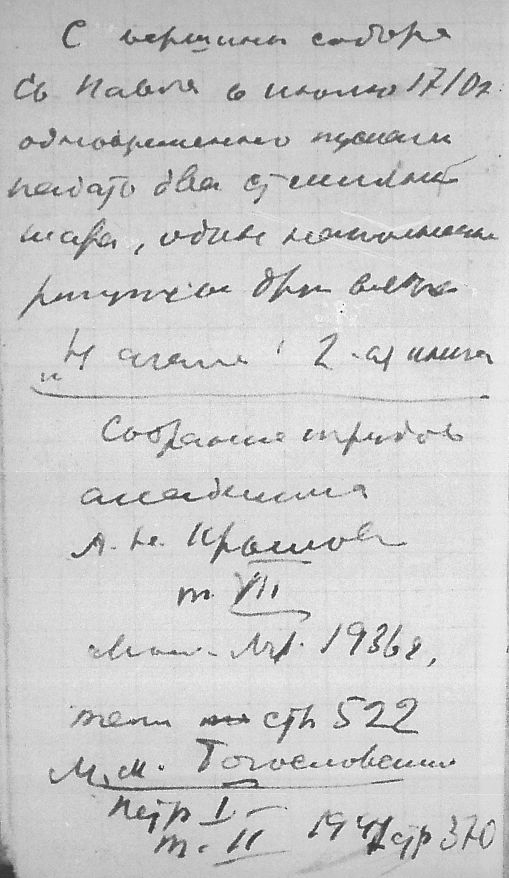 С вершины собора
Св Павла в июле 1710г
одновременно пускали
падать два стеклян
шара, один наполнен
ртутью друг
"Начала" 2-ая книга
Собрание трудов
академика
А. Н. Крылова
т. VII
Мос.-Лд. 1936г,
стр 522
М. М. Богословский
Петр I –
т. II 1941 стр 370